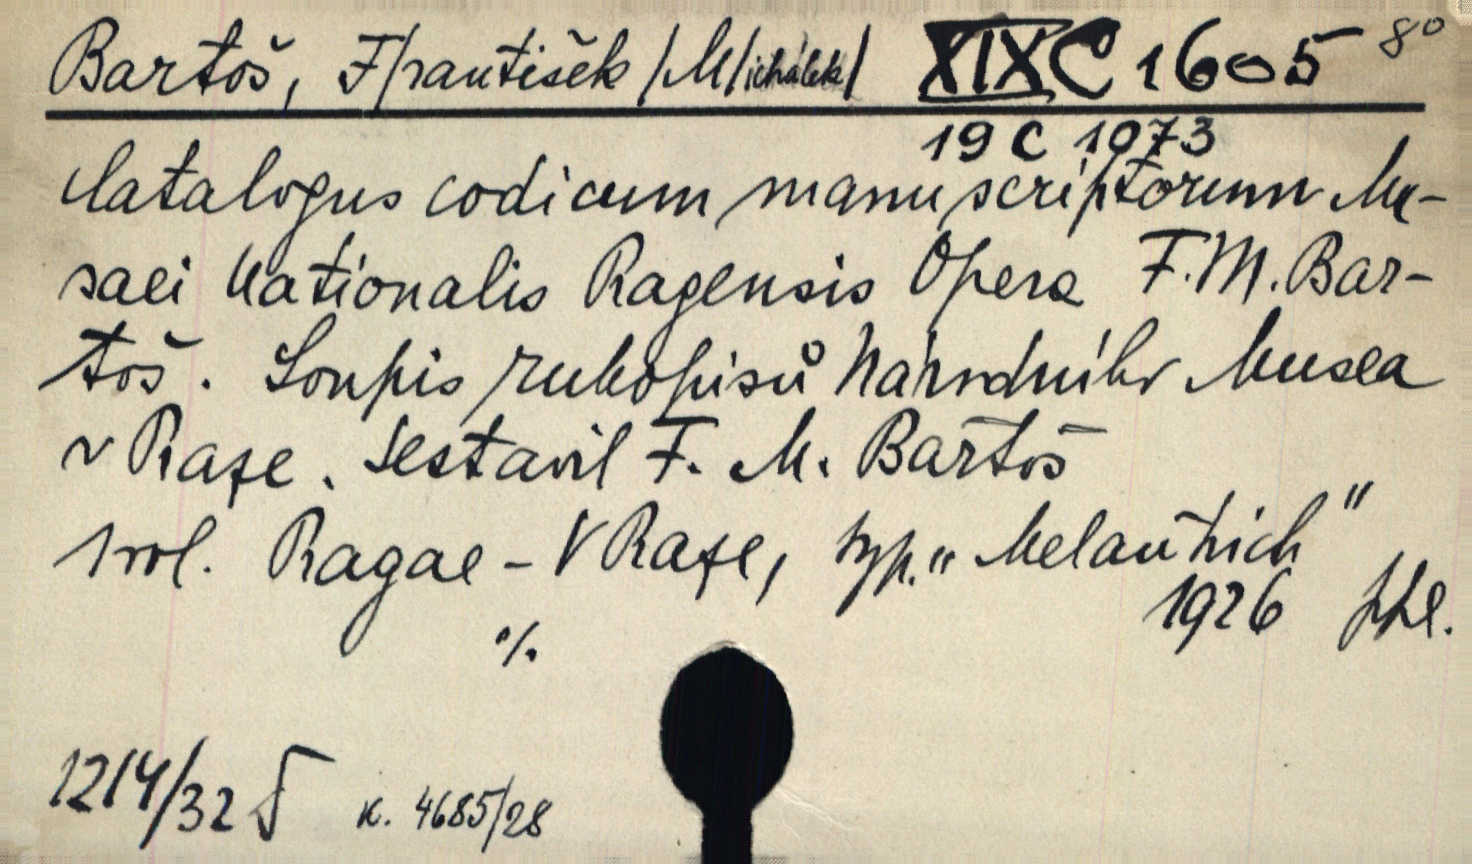 Bartoš, F/rantišek /M/ichálek/ XIX C 1605 8°
19 C 1073
Catalogus codicum manuscriptorum Mu-
saei Nationalis Pragensis Opera F. M. Bar-
toš. Soupis rukopisů Národního Musea
v Praze. Sestavil F. M. Bartoš
1 vol. Pragae - V Praze, typ. „Melantrich"
1926
%
1214/32 k. 4685/28